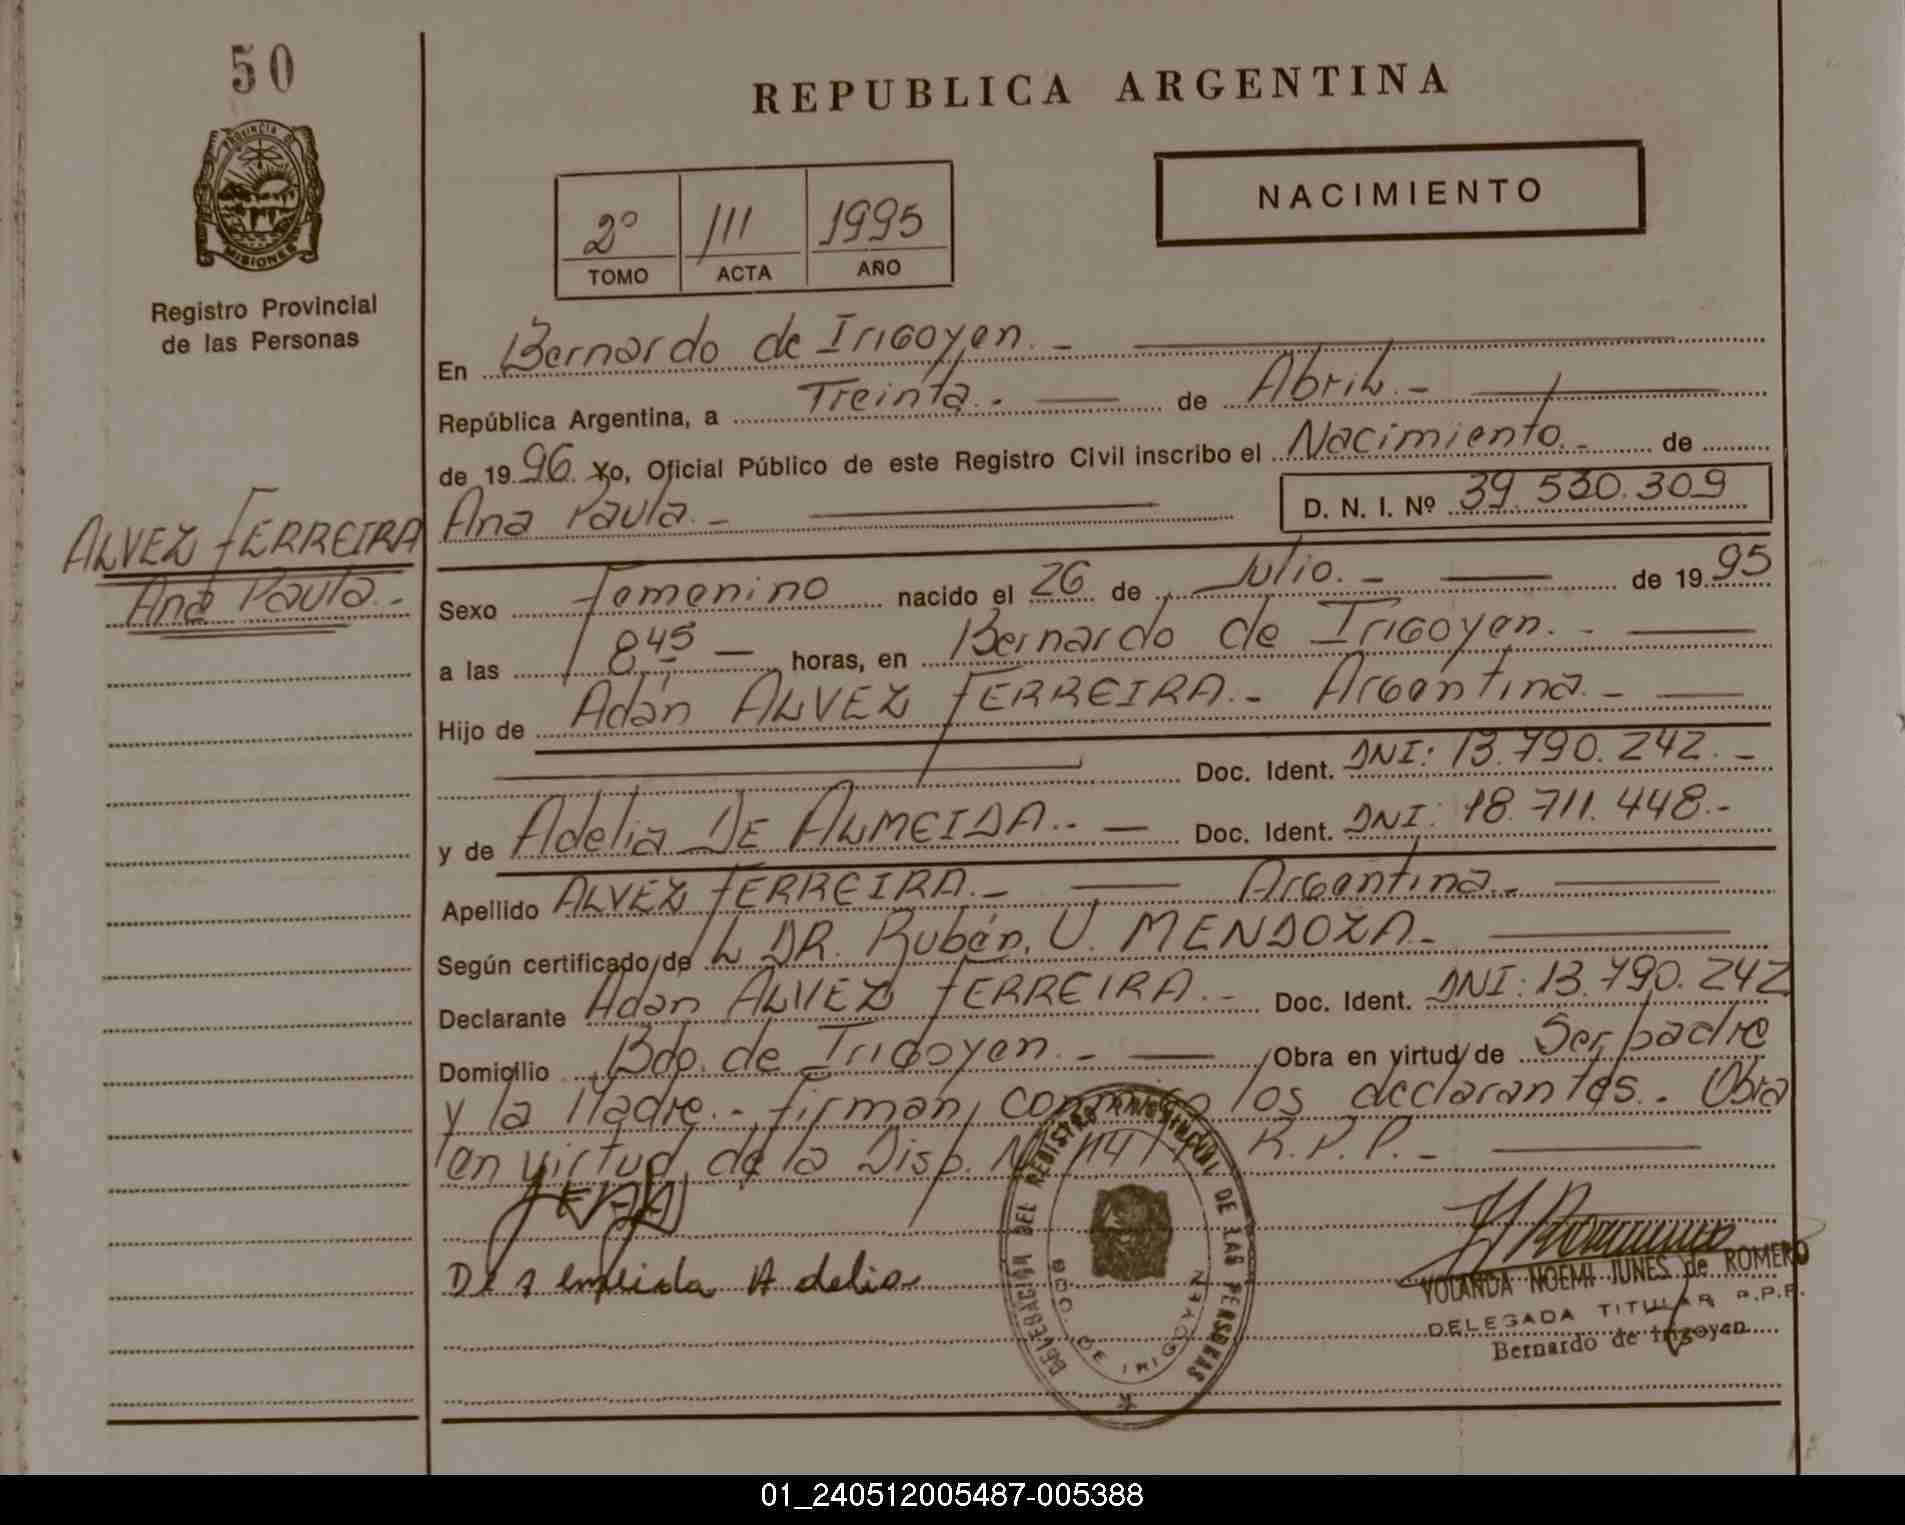 50
REPUBLICA ARGENTINA
PROVINCIA DE MISIONES
NACIMIENTO
2º 111 1995
TOMO ACTA AÑO
Registro Provincial
de las Personas
En Bernardo de Irigoyen.-
República Argentina, a Treinta.- de Abril.-
de 1996. Yo, Oficial Público de este Registro Civil inscribo el Nacimiento.- de
Ana Paula.- D. N. I. Nº 39.530.309
ALVEZ FERREIRA
Ana Paula.-
Sexo Femenino nacido el 26 de Julio.- de 1995
a las 8,45 - horas, en Bernardo de Irigoyen.-
Hijo de Adán ALVEZ FERREIRA.- Argentina.-
Doc. Ident. DNI: 13.790.242.-
y de Adelia DE ALMEIDA.- Doc. Ident. DNI: 18.711.448.-
Apellido ALVEZ FERREIRA.- Argentina.-
Según certificado de L DR. Rubén, U. MENDOZA.-
Declarante Adán ALVEZ FERREIRA.- Doc. Ident. DNI: 13.790.242
Domicilio Bdo. de Irigoyen.- Obra en virtud de Ser padre
y la Madre.- firman, conmigo los declarantes.- Obra
en virtud de la Disp. Nº R.P.P.-
De Almeida Adelia
DELEGACIÓN DEL REGISTRO PROVINCIAL DE LAS PERSONAS
BDO. DE IRIGOYEN
YOLANDA NOEMI JUNES de ROMERO
DELEGADA TITULAR R.P.P.
Bernardo de Irigoyen
01_240512005487-005388